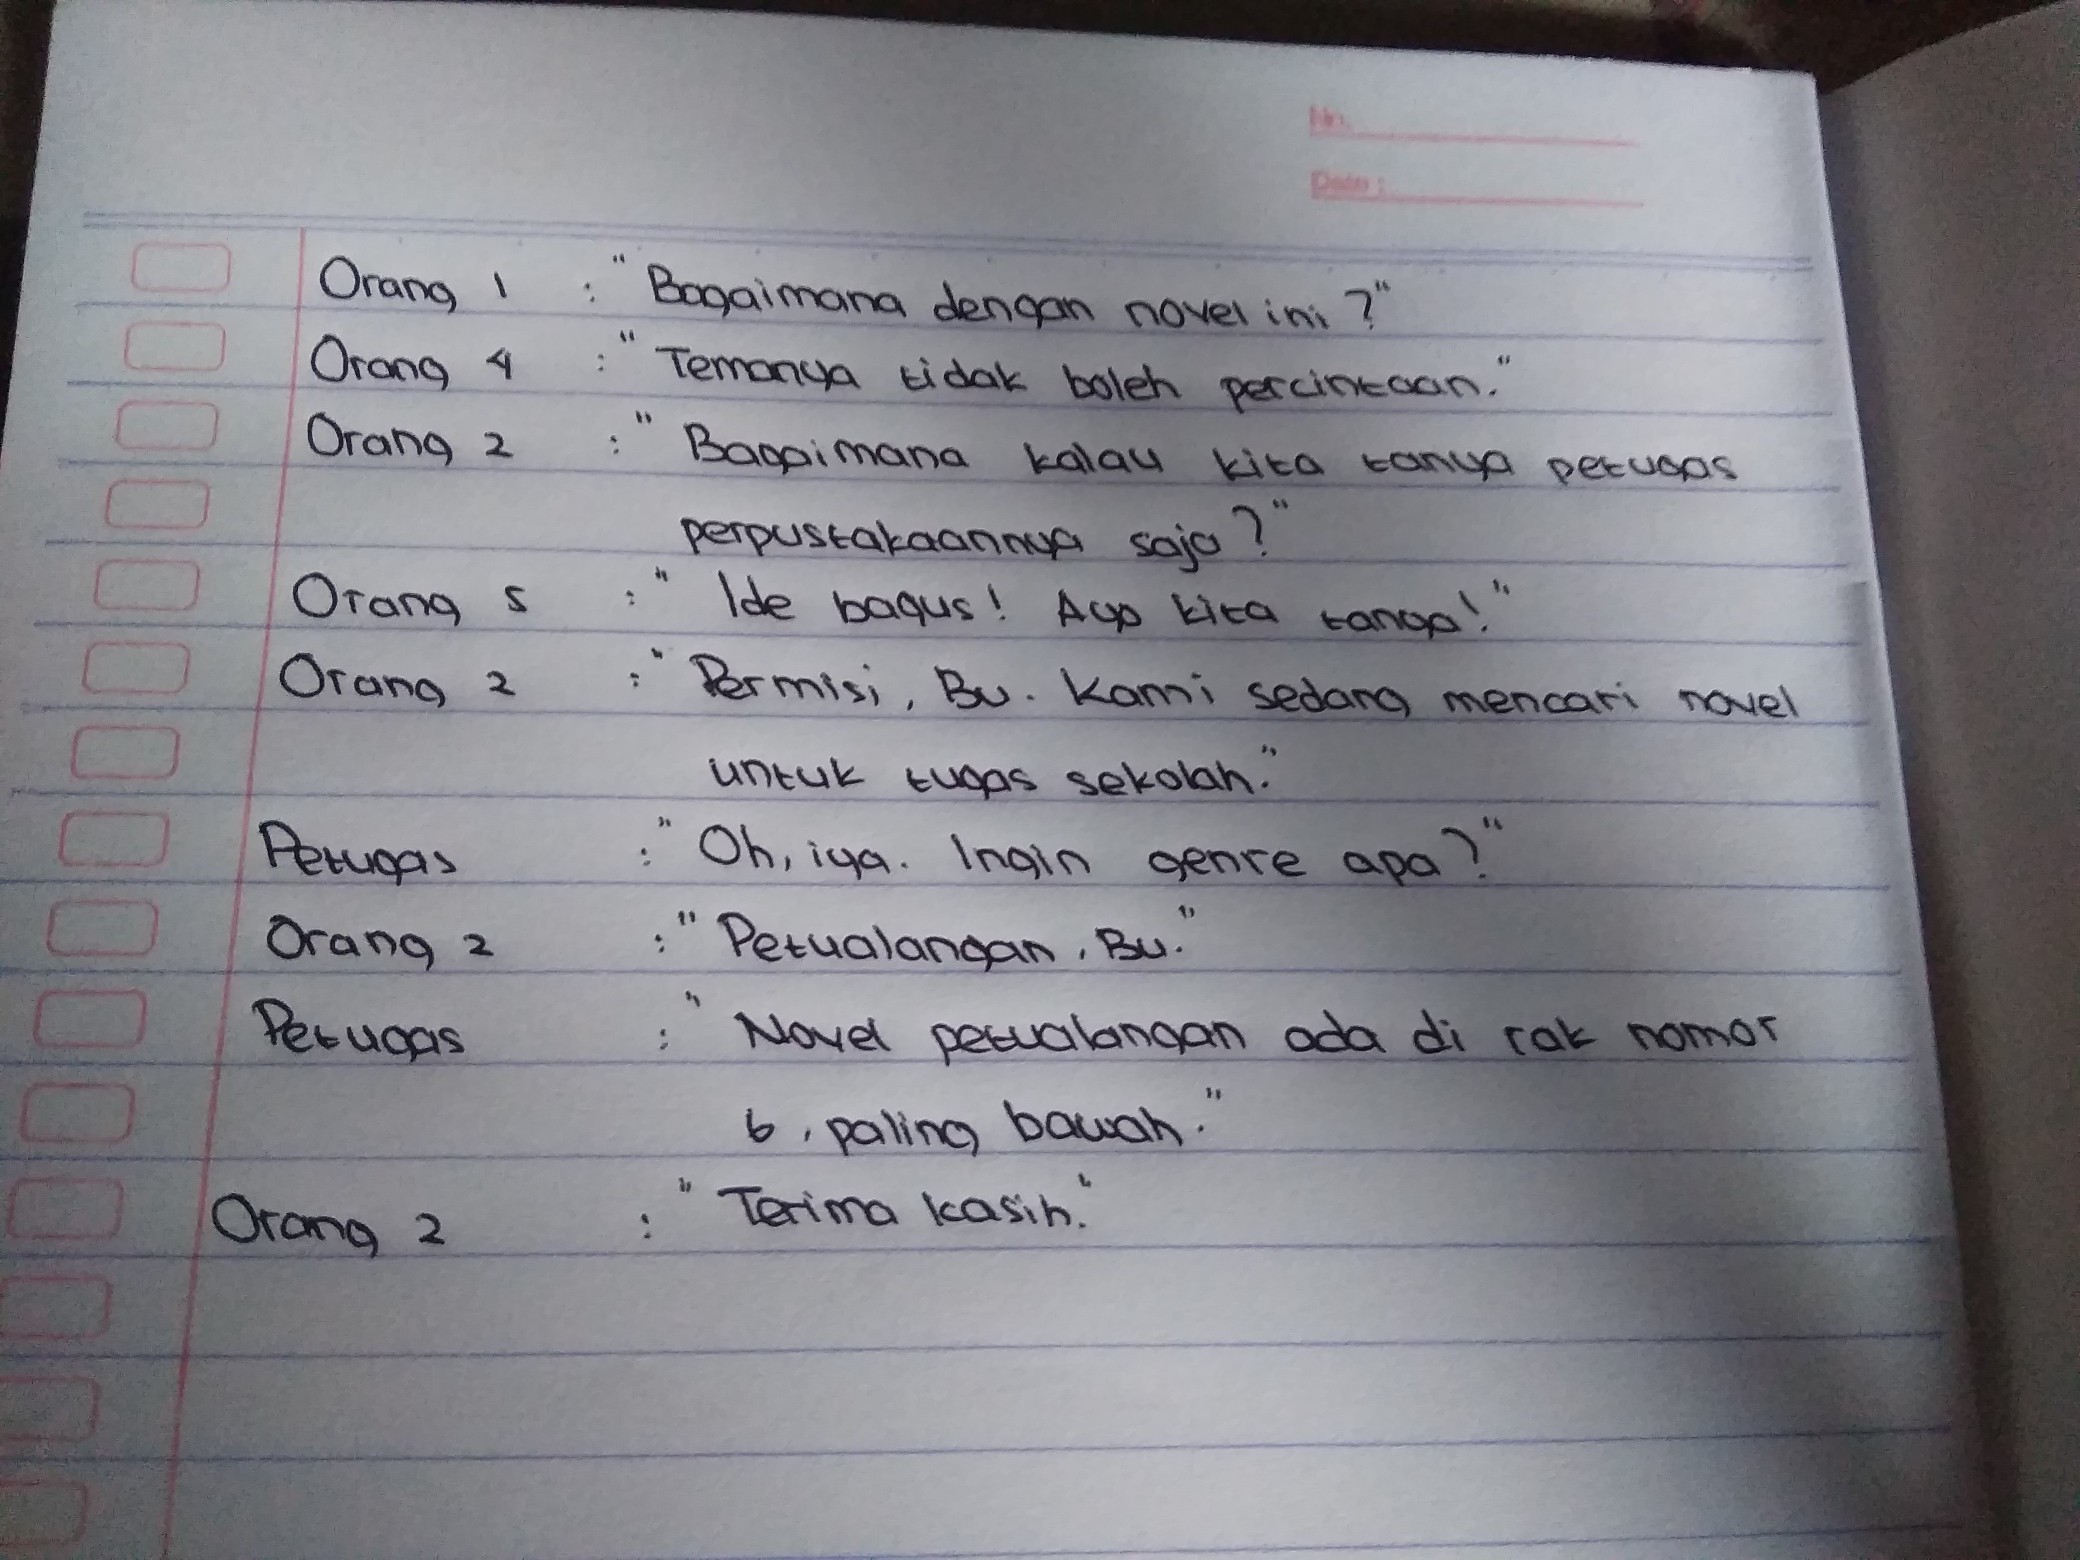 No.
Date :
Orang 1 : "Bagaimana dengan novel ini?"
Orang 4 : "Temanya tidak boleh percintaan."
Orang 2 : "Bagaimana kalau kita tanya petugas
perpustakaannya saja?"
Orang 5 : "Ide bagus! Ayo kita tanya!"
Orang 2 : "Permisi, Bu. Kami sedang mencari novel
untuk tugas sekolah."
Petugas : "Oh, iya. Ingin genre apa?"
Orang 2 : "Petualangan, Bu."
Petugas : "Novel petualangan ada di rak nomor
6, paling bawah."
Orang 2 : "Terima kasih."